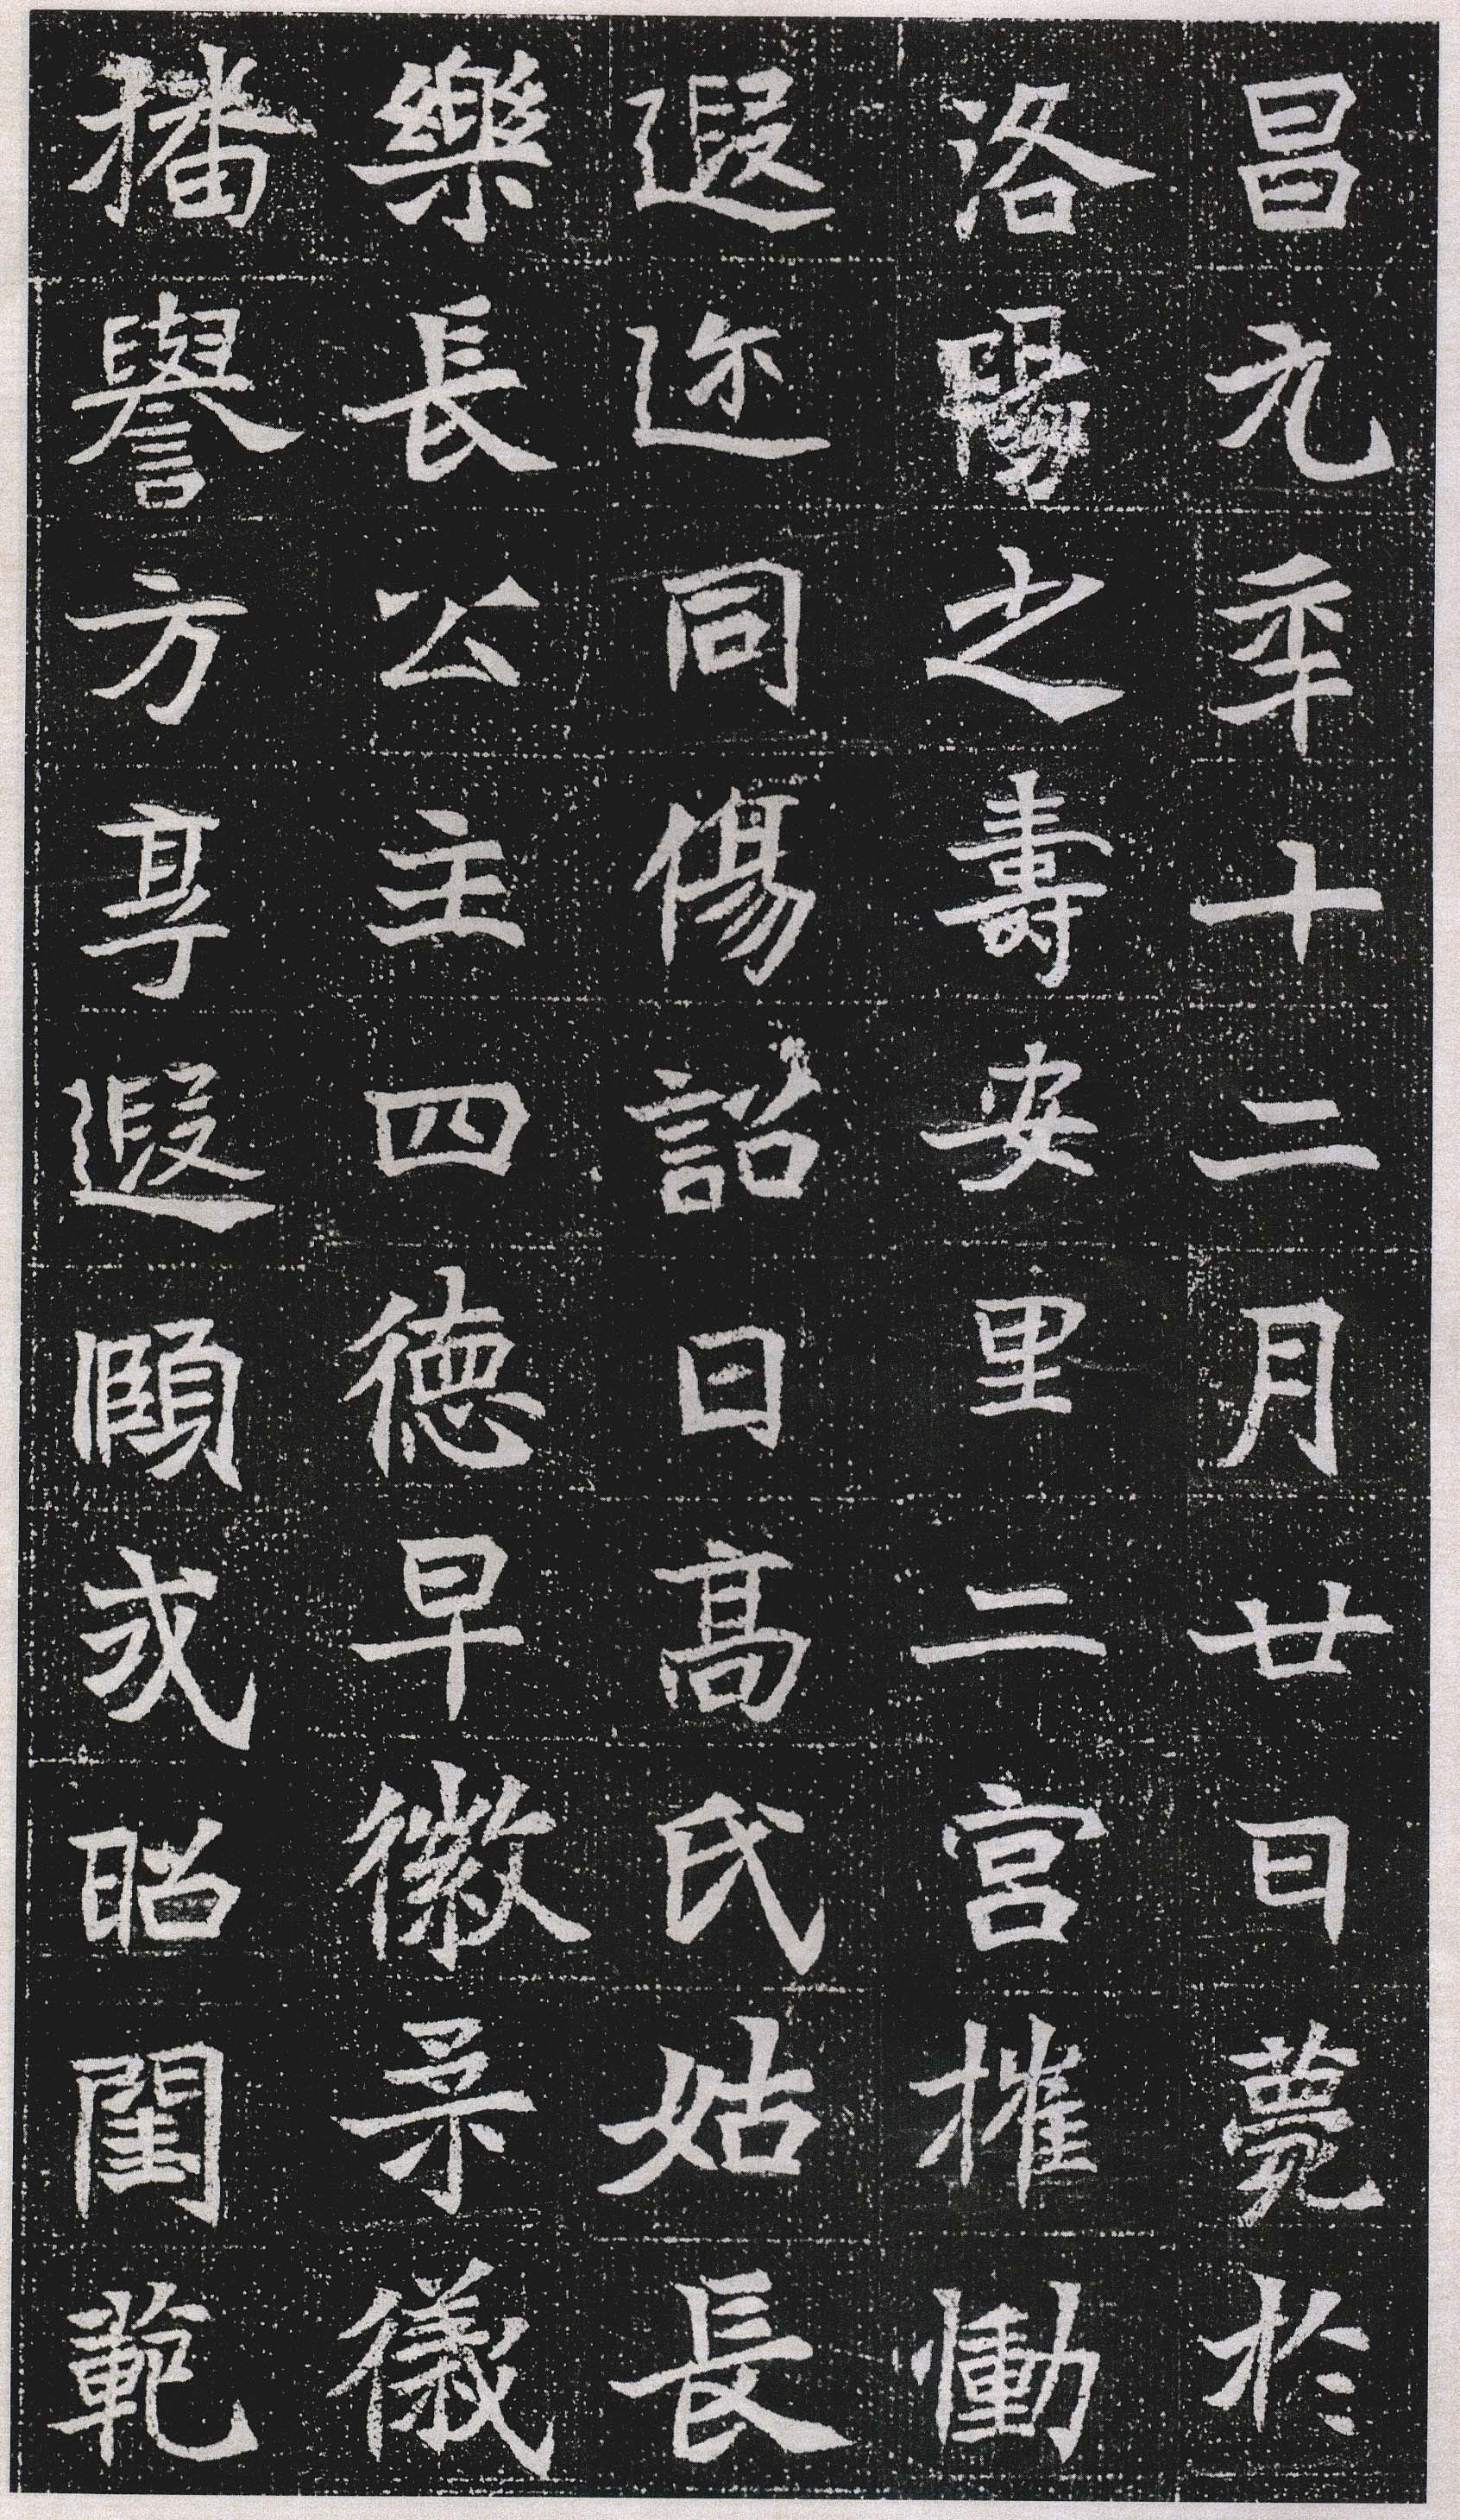 昌元年十二月廿日薨於
洛陽之壽安里二宮摧慟
遐迩同傷詔曰高氏姑長
樂長公主四德早徽柔儀
播譽方享遐頤式昭閨範